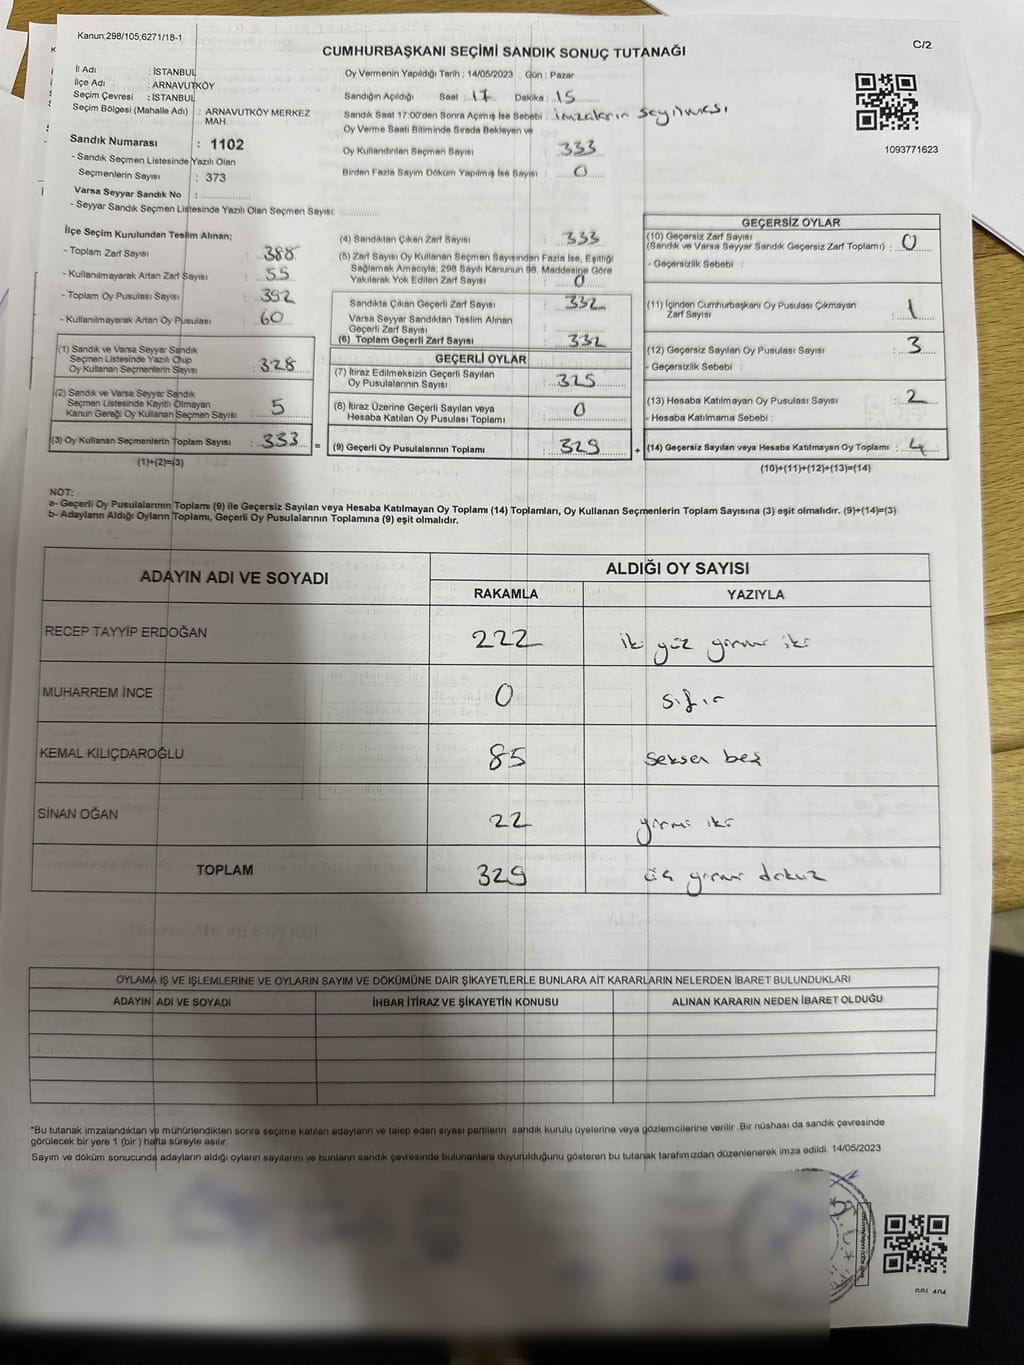 Kanun;298/105;6271/18-1
C/2
CUMHURBAŞKANI SEÇİMİ SANDIK SONUÇ TUTANAĞI
İl Adı : İSTANBUL
İlçe Adı : ARNAVUTKÖY
Seçim Çevresi : İSTANBUL
Seçim Bölgesi (Mahalle Adı) : ARNAVUTKÖY MERKEZ
MAH.
Sandık Numarası : 1102
- Sandık Seçmen Listesinde Yazılı Olan
Seçmenlerin Sayısı : 373
Varsa Seyyar Sandık No :
- Seyyar Sandık Seçmen Listesinde Yazılı Olan Seçmen Sayısı:
Oy Vermenin Yapıldığı Tarih : 14/05/2023 Gün : Pazar
Sandığın Açıldığı Saat : 17 Dakika : 15
Sandık Saat 17:00'den Sonra Açımış İse Sebebi : imzaların sayılması
Oy Verme Saati Bitiminde Sırada Bekleyen ve
Oy Kullandırılan Seçmen Sayısı : 333
Birden Fazla Sayım Döküm Yapılmış İse Sayısı : 0
1093771623
İlçe Seçim Kurulundan Teslim Alınan;
- Toplam Zarf Sayısı : 388
- Kullanılmayarak Artan Zarf Sayısı : 55
- Toplam Oy Pusulası Sayısı : 392
- Kullanılmayarak Artan Oy Pusulası : 60
(1) Sandık ve Varsa Seyyar Sandık
Seçmen Listesinde Yazılı Olup
Oy Kullanan Seçmenlerin Sayısı : 328
(2) Sandık ve Varsa Seyyar Sandık
Seçmen Listesinde Kayıtlı Olmayan
Kanun Gereği Oy Kullanan Seçmen Sayısı : 5
(3) Oy Kullanan Seçmenlerin Toplam Sayısı : 333 =
(1)+(2)=(3)
(4) Sandıktan Çıkan Zarf Sayısı : 333
(5) Zarf Sayısı Oy Kullanan Seçmen Sayısından Fazla İse, Eşitliği
Sağlamak Amacıyla, 298 Sayılı Kanunun 98. Maddesine Göre
Yakılarak Yok Edilen Zarf Sayısı : 0
Sandıkta Çıkan Geçerli Zarf Sayısı : 332
Varsa Seyyar Sandıktan Teslim Alınan
Geçerli Zarf Sayısı :
(6) Toplam Geçerli Zarf Sayısı : 332
GEÇERLİ OYLAR
(7) İtiraz Edilmeksizin Geçerli Sayılan
Oy Pusulalarının Sayısı : 325
(8) İtiraz Üzerine Geçerli Sayılan veya
Hesaba Katılan Oy Pusulası Toplamı : 0
(9) Geçerli Oy Pusulalarının Toplamı : 329 +
GEÇERSİZ OYLAR
(10) Geçersiz Zarf Sayısı
(Sandık ve Varsa Seyyar Sandık Geçersiz Zarf Toplamı) : 0
- Geçersizlik Sebebi :
(11) İçinden Cumhurbaşkanı Oy Pusulası Çıkmayan
Zarf Sayısı : 1
(12) Geçersiz Sayılan Oy Pusulası Sayısı : 3
- Geçersizlik Sebebi :
(13) Hesaba Katılmayan Oy Pusulası Sayısı : 2
- Hesaba Katılmama Sebebi :
(14) Geçersiz Sayılan veya Hesaba Katılmayan Oy Toplamı : 4
(10)+(11)+(12)+(13)=(14)
NOT:
a- Geçerli Oy Pusulalarının Toplamı (9) ile Geçersiz Sayılan veya Hesaba Katılmayan Oy Toplamı (14) Toplamları, Oy Kullanan Seçmenlerin Toplam Sayısına (3) eşit olmalıdır. (9)+(14)=(3)
b- Adayların Aldığı Oyların Toplamı, Geçerli Oy Pusulalarının Toplamına (9) eşit olmalıdır.
ADAYIN ADI VE SOYADI ALDIĞI OY SAYISI
RAKAMLA YAZIYLA
RECEP TAYYİP ERDOĞAN 222 iki yüz yirmi iki
MUHARREM İNCE 0 sıfır
KEMAL KILIÇDAROĞLU 85 seksen beş
SİNAN OĞAN 22 yirmi iki
TOPLAM 329 üç yirmi dokuz
OYLAMA İŞ VE İŞLEMLERİNE VE OYLARIN SAYIM VE DÖKÜMÜNE DAİR ŞİKAYETLERLE BUNLARA AİT KARARLARIN NELERDEN İBARET BULUNDUKLARI
ADAYIN ADI VE SOYADI İHBAR İTİRAZ VE ŞİKAYETİN KONUSU ALINAN KARARIN NEDEN İBARET OLDUĞU
*Bu tutanak imzalandıktan ve mühürlendikten sonra seçime katılan adayların ve talep eden siyasi partilerin sandık kurulu üyelerine veya gözlemcilerine verilir .Bir nüshası da sandık çevresinde
görülecek bir yere 1 (bir ) hafta süreyle asılır.
Sayım ve döküm sonucunda adayların aldığı oyların sayılarını ve bunların sandık çevresinde bulunanlara duyurulduğunu gösteren bu tutanak tarafımızdan düzenlenerek imza edildi. 14/05/2023